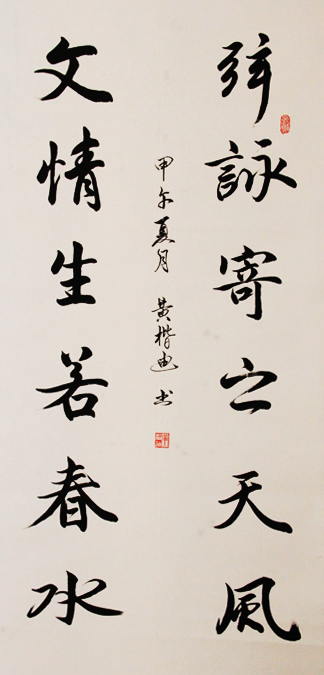 弦詠寄之天風
文情生若春水
甲午夏月 黄楷迪书